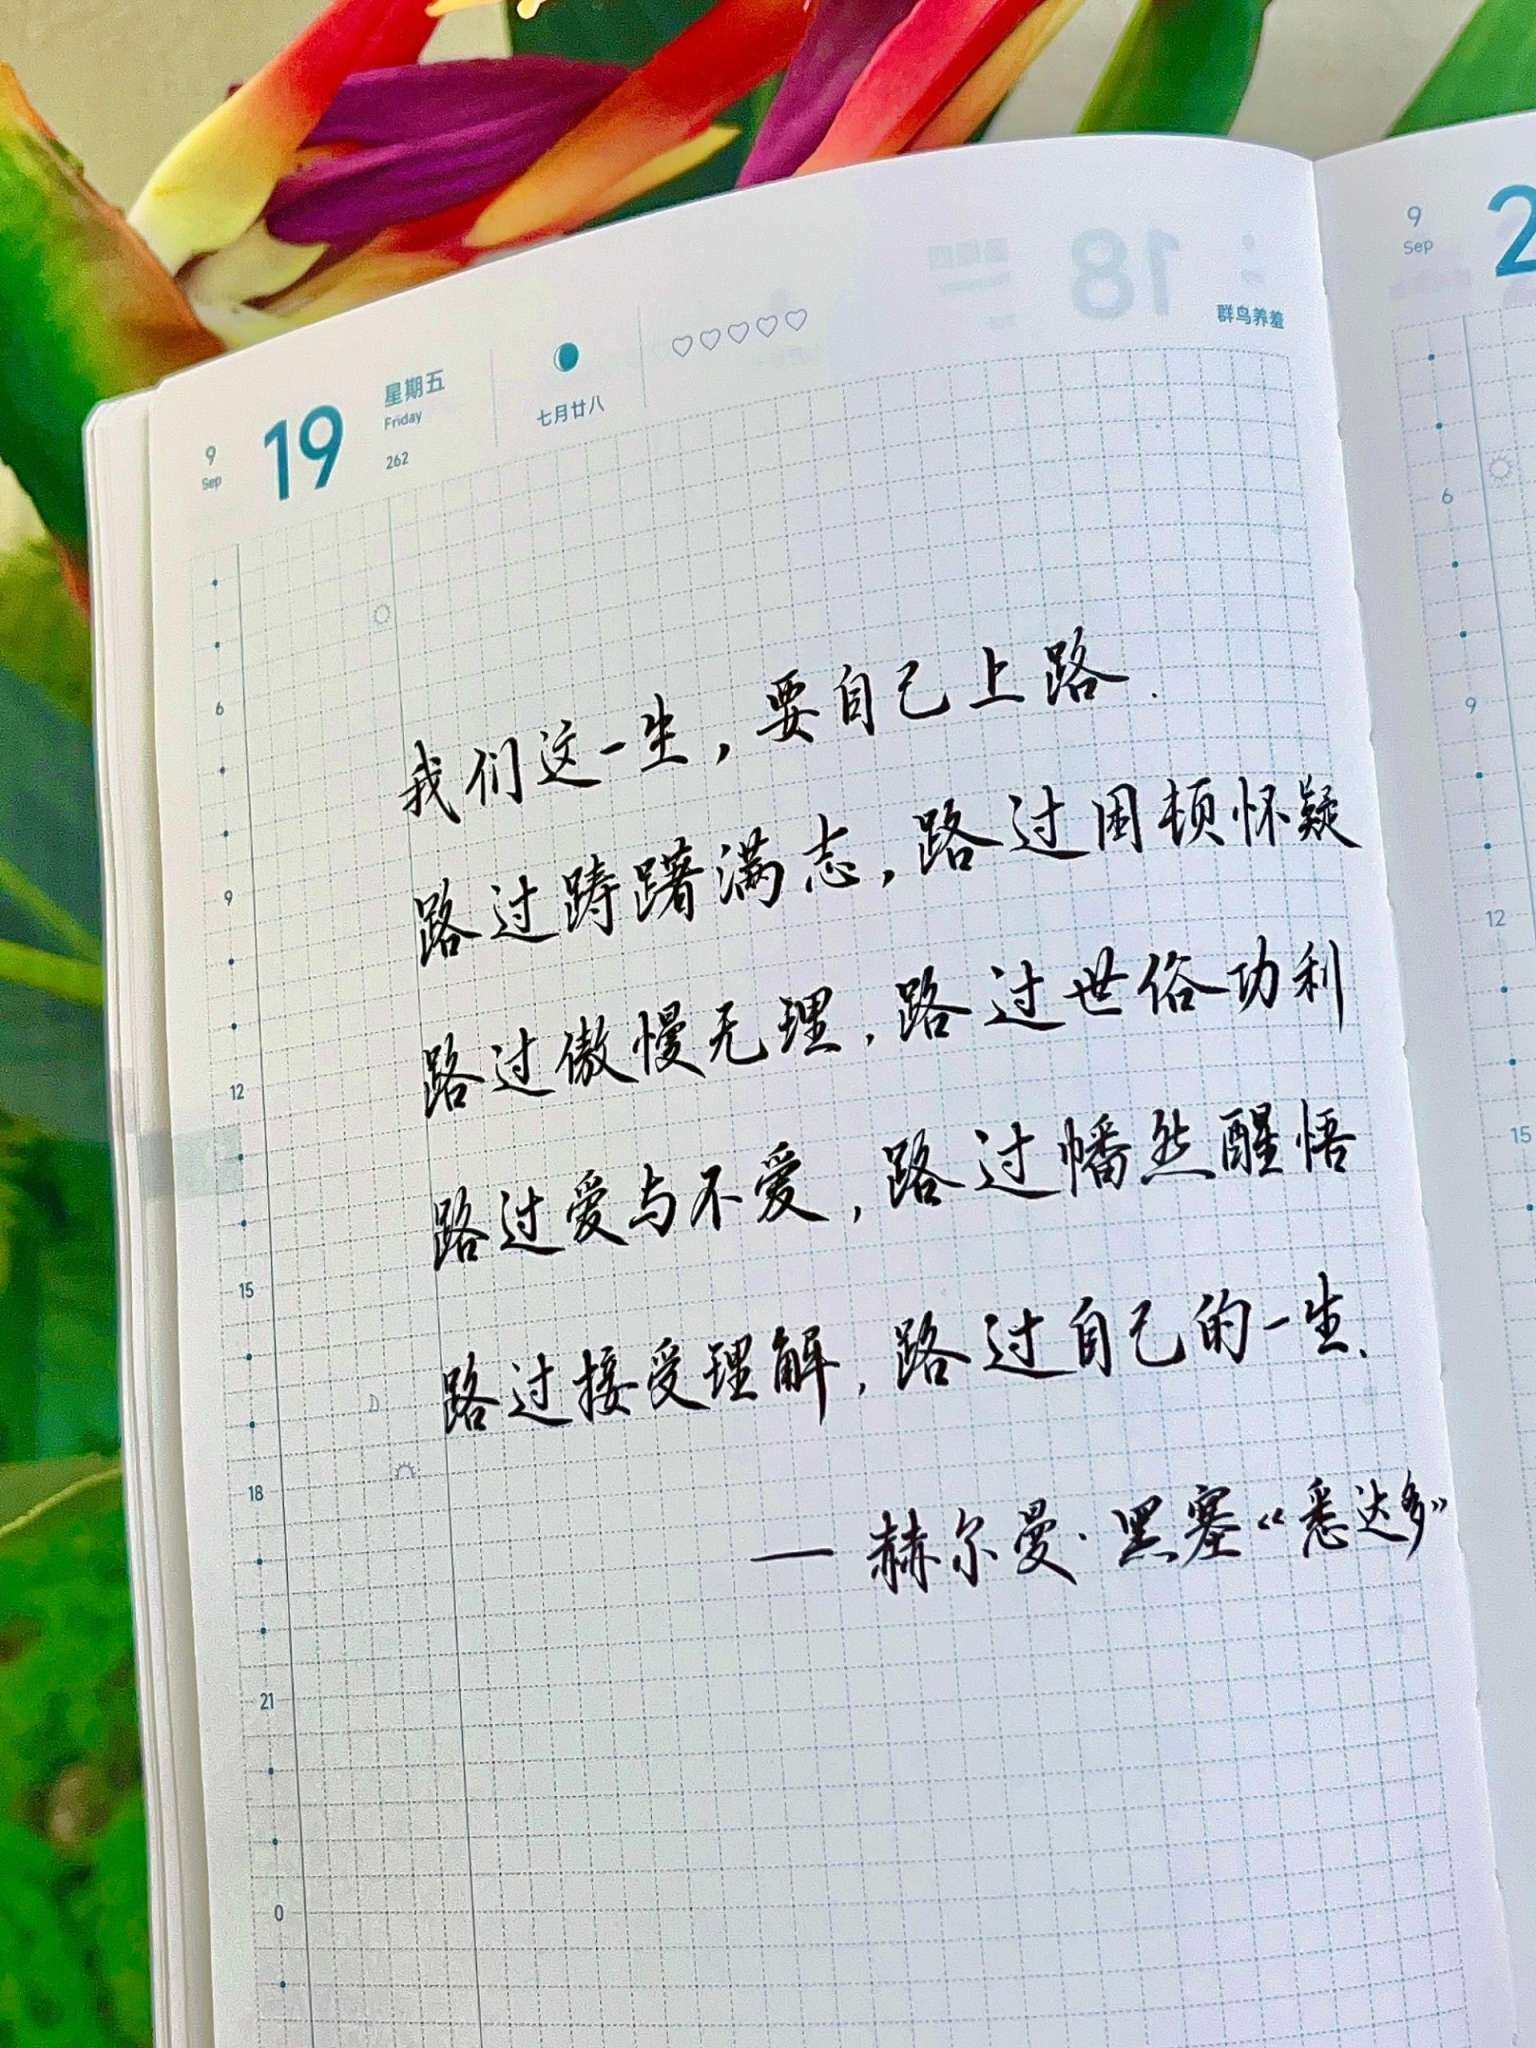 9
Sep
19
星期五
Friday
262
七月廿八
18
群鸟养羞
9
Sep
2
我们这一生，要自己上路.
路过踌躇满志，路过困顿怀疑
路过傲慢无理，路过世俗功利
路过爱与不爱，路过幡然醒悟
路过接受理解，路过自己的一生.
— 赫尔曼·黑塞《悉达多》
6
9
12
15
18
21
0
6
9
12
15